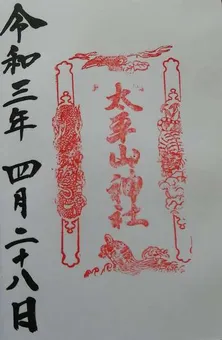 太平山神社
令和三年四月二十八日